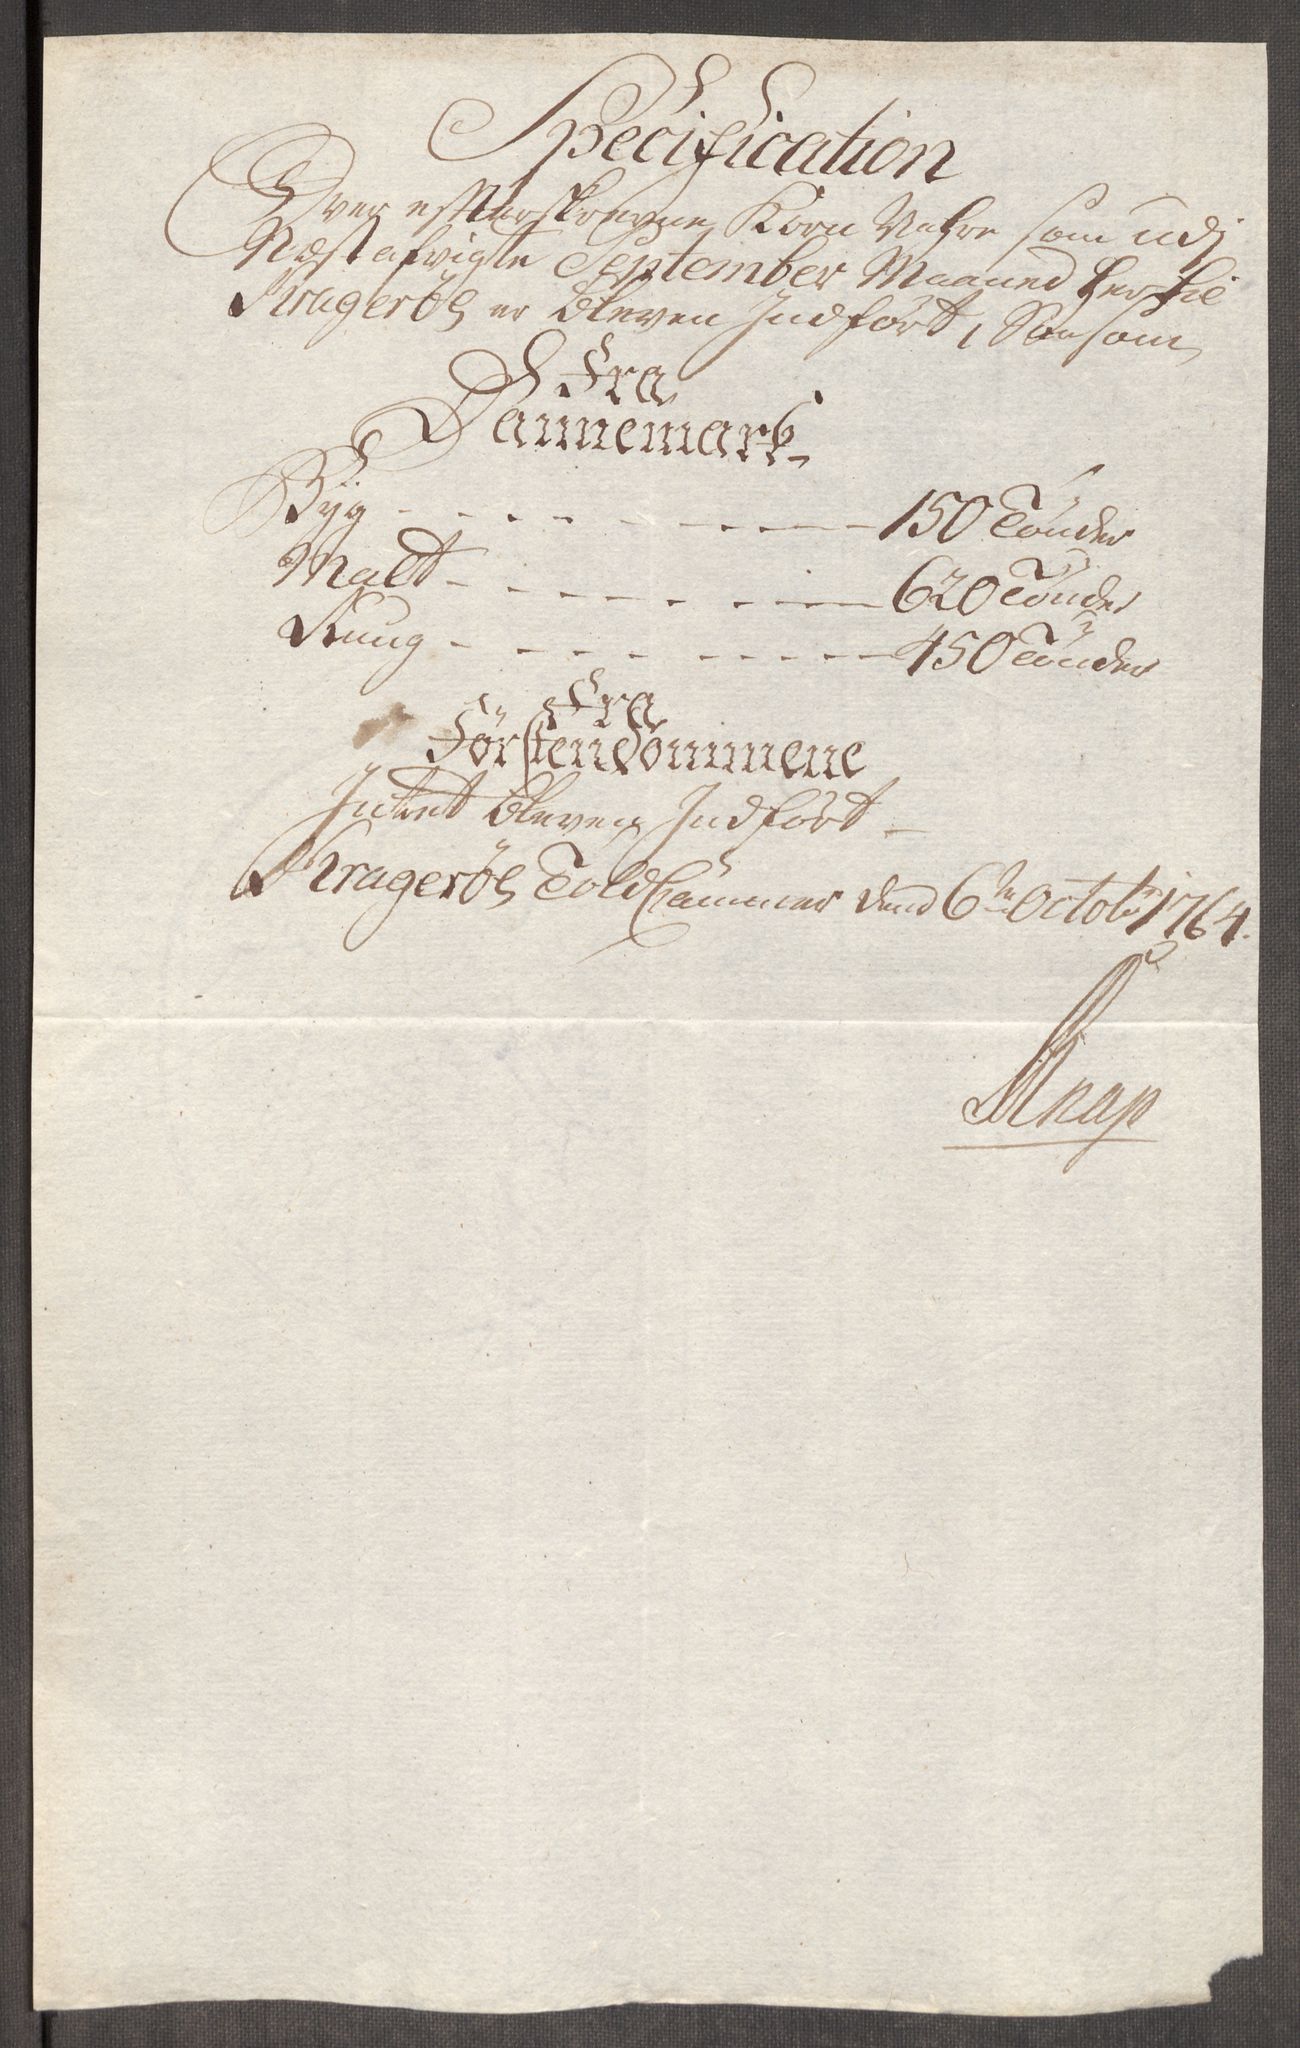 Specification
Over efterskrevne Korn Vahre som udj
Næstafvigte September Maaned her til
Kragerøe er bleven Indført, Saasom
Fra
Dannemark
Byg - - - - - - - - - 150 Tønder
Malt - - - - - - - - 620 Tønder
Rung - - - - - - - - 450 Tønder
Fra
Førstendommene
Intet bleven Indført -
Kragerøe Told Cammer dend 6te Octobr 1764.
Knap